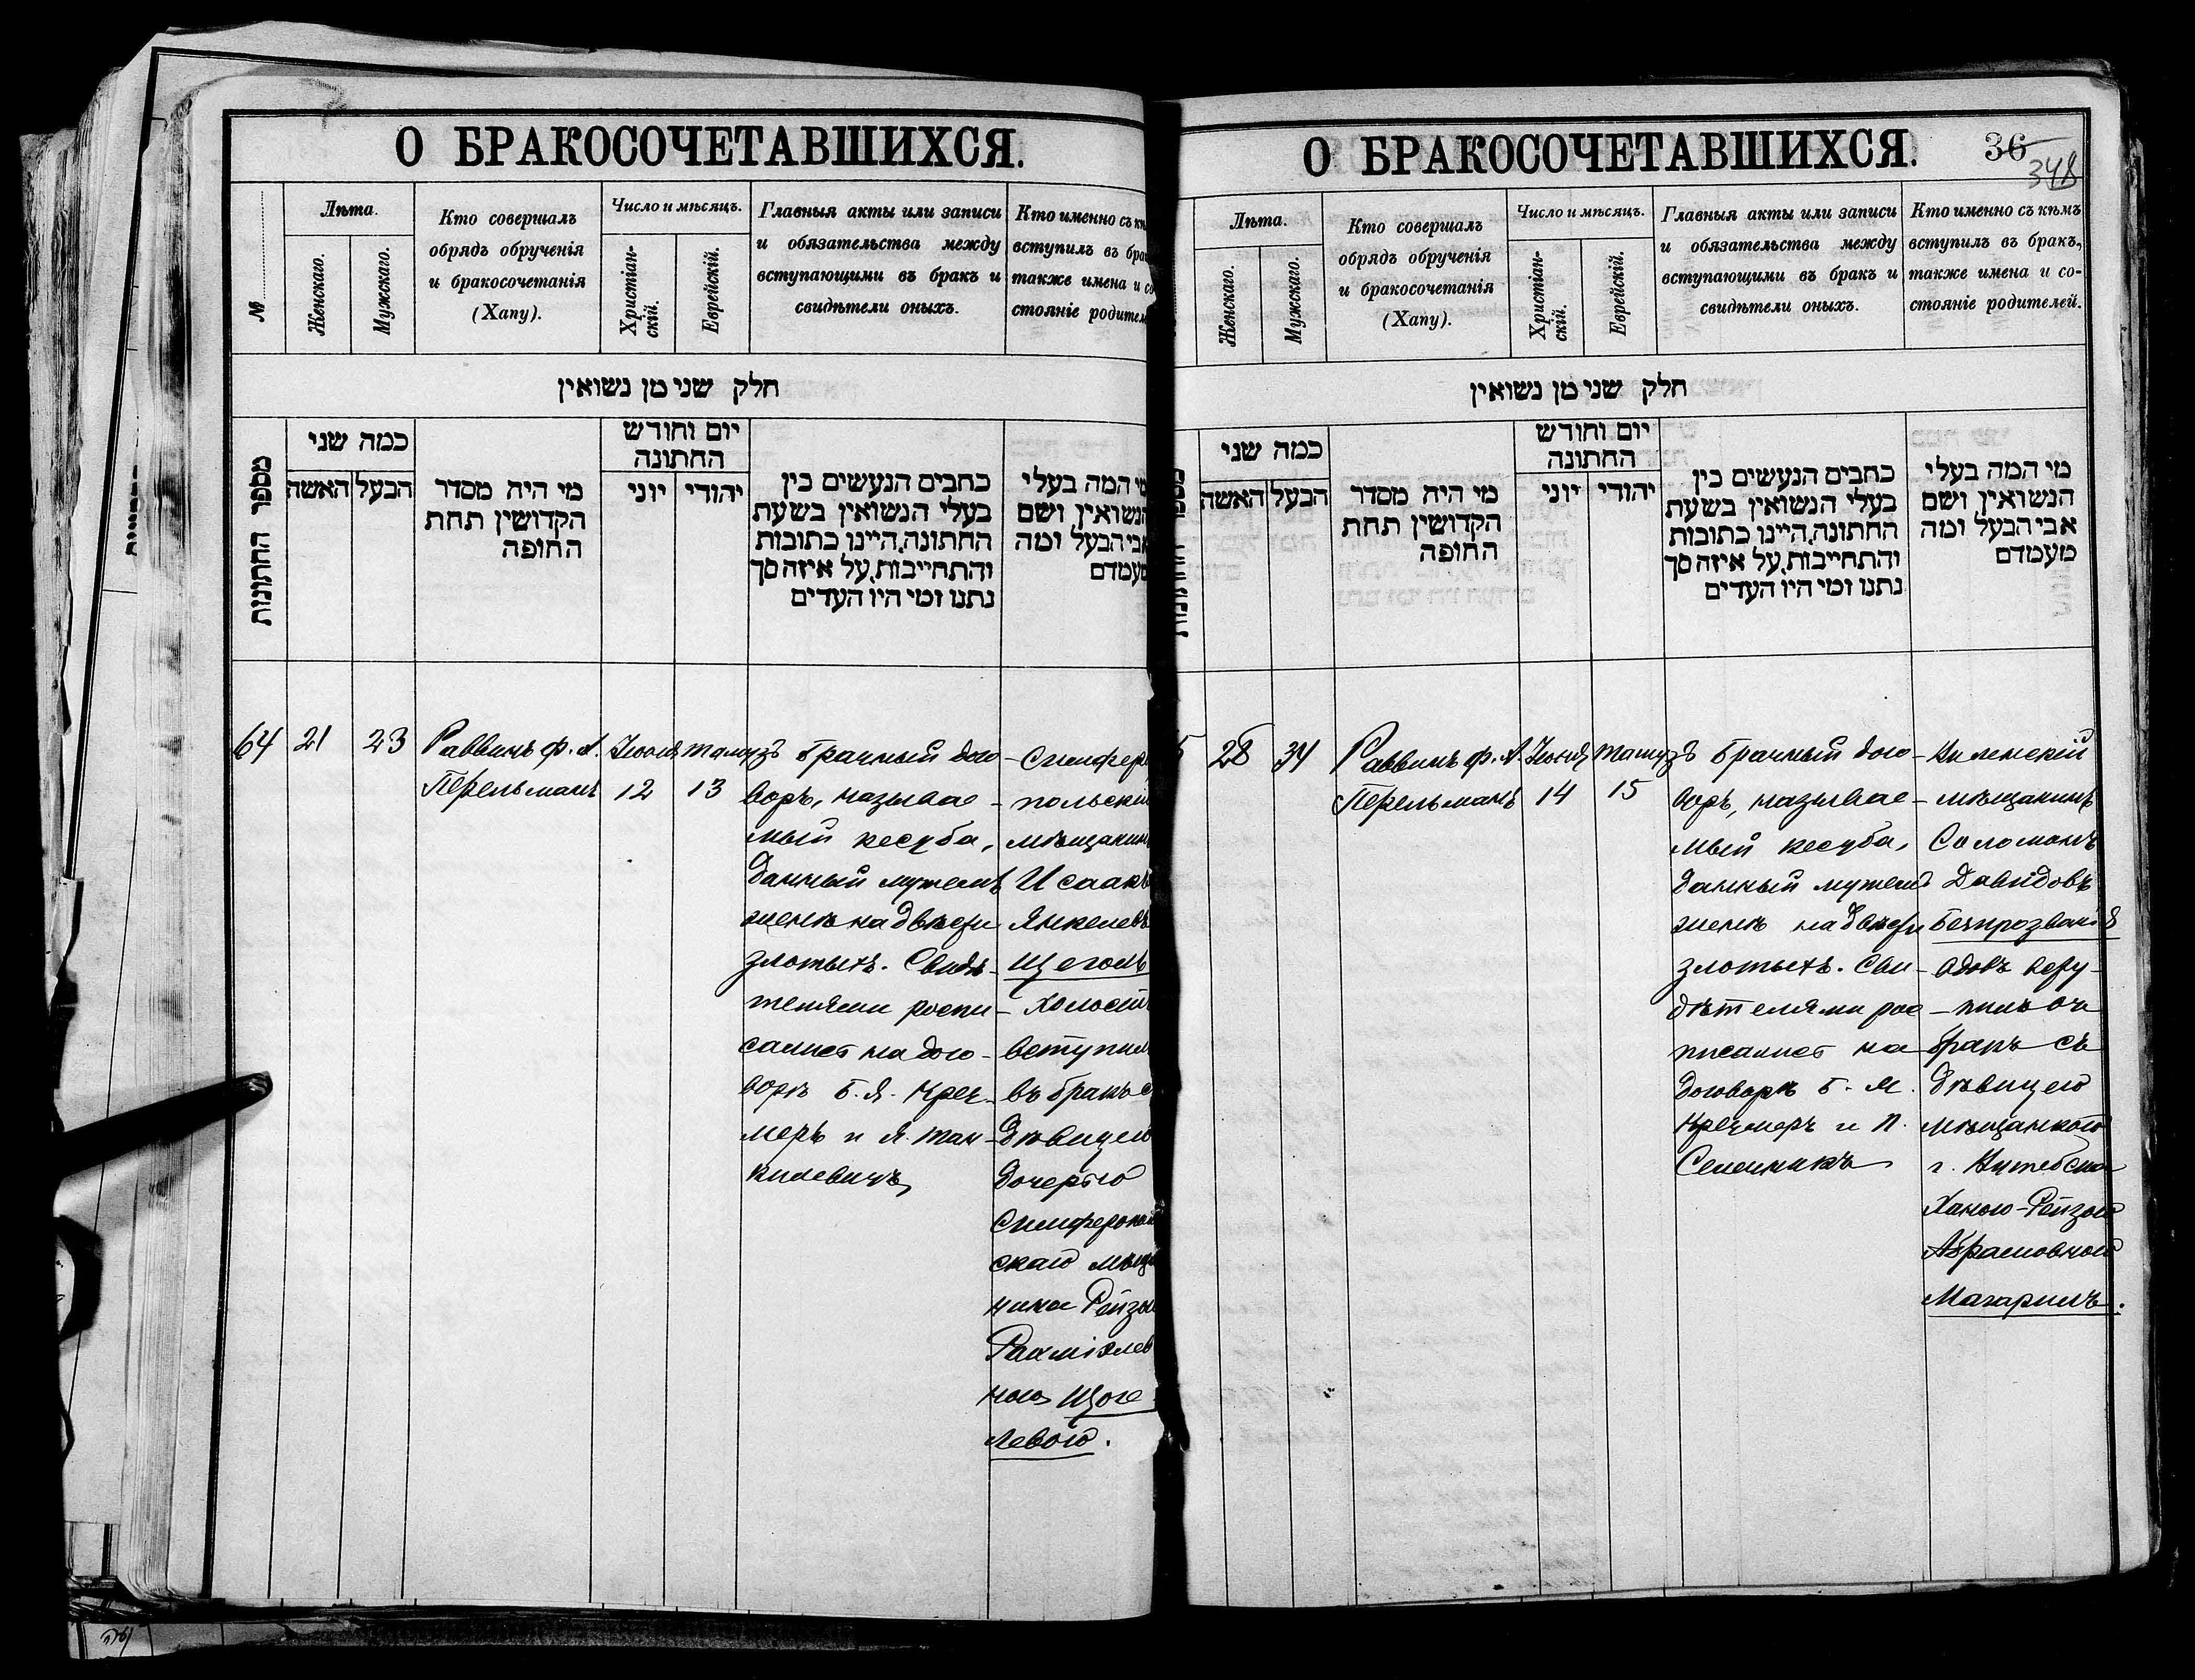 О БРАКОСОЧЕТАВШИХСЯ.
№
Лѣта.
Женскаго.
Мужскаго.
Кто совершалъ
обрядъ обрученія
и бракосочетанія
(Хапу).
Число и мѣсяцъ.
Христіан-
скій.
Еврейскій.
Главныя акты или записи
и обязательства между
вступающими въ бракъ и
свидѣтели оныхъ.
Кто именно съ
вступилъ въ
также имена и
стояніе
חלק שני מן נשואין
מספר החתונות
כמה שני
האשה
הבעל
מי היה מסדר
הקדושין תחת
החופה
יום וחודש
החתונה
יוני
יהודי
כתבים הנעשים בין
בעלי הנשואין בשעת
החתונה, היינו כתובות
והתחייבות, על איזה סך
נתנו ומי היו העדים
מי המה בעלי
הנשואין ושם
אבי הבעל ומה
מעמדם
64
21
23
Раввинъ Ф. А.
Перельманъ
Іюня
12
Тамузъ
13
Брачный дого-
воръ, называе-
мый кесуба,
данный мужемъ
женѣ на двѣсти
злотыхъ. Свидѣ-
телями роспи-
сались на дого-
ворѣ Б. Я. Креч-
меръ и Я. Тан-
килевичъ
Симферо
польскій
мѣщанинъ
Исаакъ
Янкелевъ
Щеголь
холостъ
вступилъ
въ бракъ с
дѣвицею
дочерью
Симферополь
скаго мѣща
нина Рейзы
Рахміэлев
ною Щого-
левою.
О БРАКОСОЧЕТАВШИХСЯ.
36
348
Лѣта.
Женскаго.
Мужскаго.
Кто совершалъ
обрядъ обрученія
и бракосочетанія
(Хапу).
Число и мѣсяцъ.
Христіан-
скій.
Еврейскій.
Главныя акты или записи
и обязательства между
вступающими въ бракъ и
свидѣтели оныхъ.
Кто именно съ кѣмъ
вступилъ въ бракъ,
также имена и со-
стояніе родителей.
חלק שני מן נשואין
כמה שני
האשה
הבעל
מי היה מסדר
הקדושין תחת
החופה
יום וחודש
החתונה
יוני
יהודי
כתבים הנעשים בין
בעלי הנשואין בשעת
החתונה, היינו כתובות
והתחייבות, על איזה סך
נתנו ומי היו העדים
מי המה בעלי
הנשואין ושם
אבי הבעל ומה
מעמדם
5
28
34
Раввинъ Ф. А.
Перельманъ
Іюня
14
Тамузъ
15
Брачный дого-
воръ, называе-
мый кесуба,
данный мужемъ
женѣ на двѣсти
злотыхъ. Сви-
дѣтелями рос-
писались на
договорѣ Б. Я.
Кречмеръ и П.
Селенникъ
Виленскій
мѣщанинъ
Соломонъ
Давидовъ
Безпрозван
вдовъ всту-
пилъ въ
бракъ съ
дѣвицею
мѣщанкою
г. Витебска
Ханою-Рейзою
Абрамовною
Магарилъ.